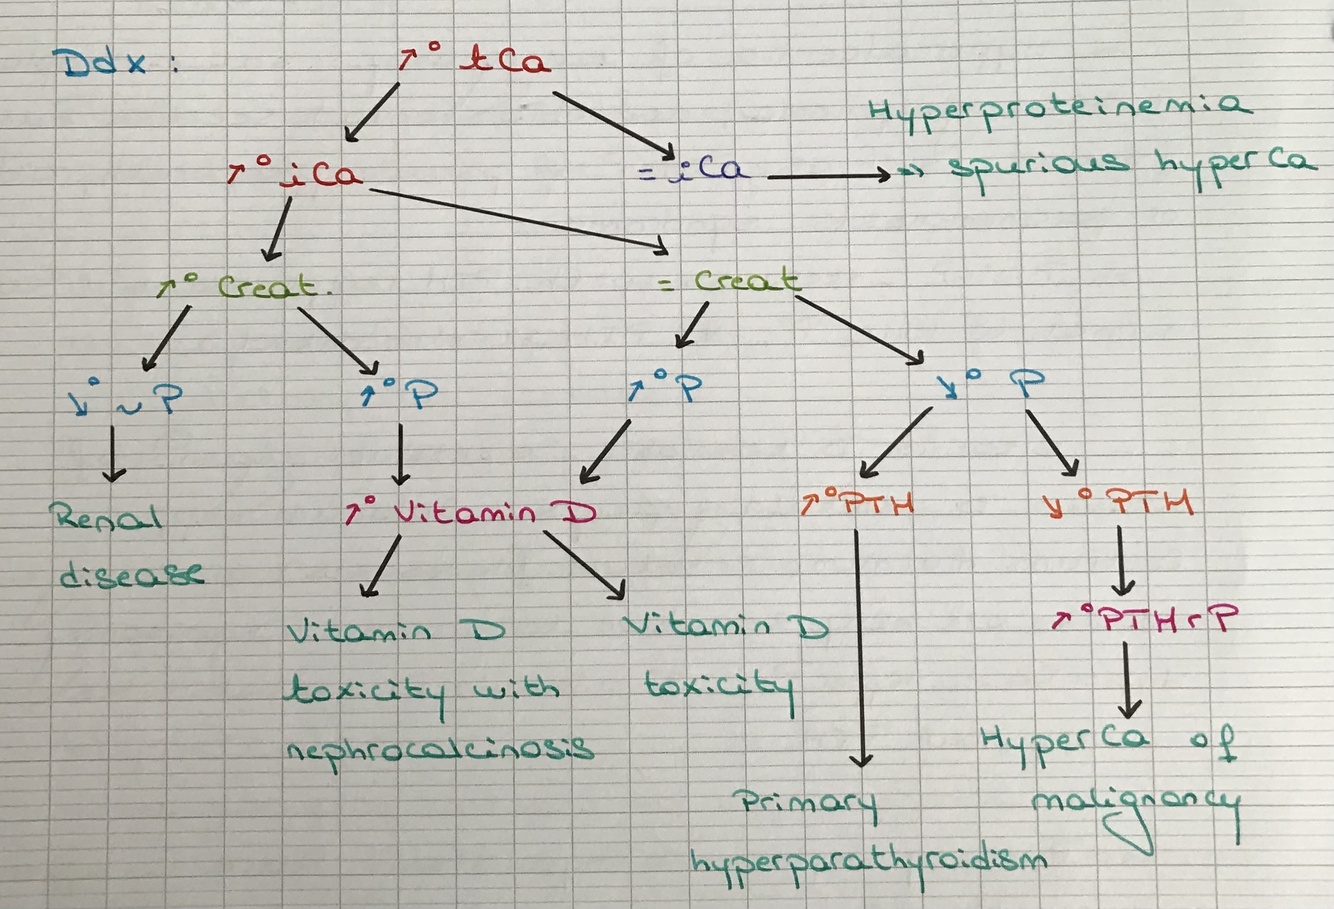 Ddx :
↗° tCa
Hyperproteinemia
↗° iCa
= iCa
=> spurious hyperCa
↗° Creat.
= Creat
↘° ~ P
↗° P
↗° P
↘° P
Renal
disease
↗° Vitamin D
↗° PTH
↘° PTH
Vitamin D
toxicity with
nephrocalcinosis
Vitamin D
toxicity
↗° PTHrP
HyperCa of
malignancy
Primary
hyperparathyroidism